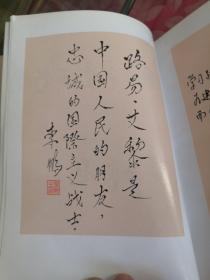 路易·艾黎是
中国人民的朋友，
忠诚的国際主义战士。
李鹏
学习